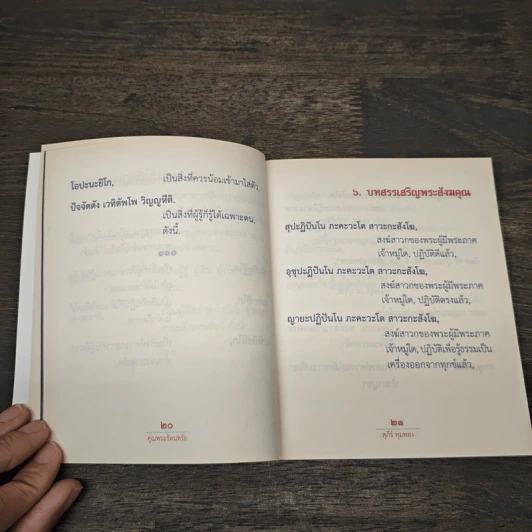 โอปะนะยิโก, เป็นสิ่งที่ควรน้อมเข้ามาใส่ตัว,
ปัจจัตตัง เวทิตัพโพ วิญญูหีติ.
เป็นสิ่งที่ผู้รู้ก็รู้ได้เฉพาะตน,
ดังนี้.
๒๐
คุณพระรัตนตรัย
๖. บทสรรเสริญพระสังฆคุณ
สุปะฏิปันโน ภะคะวะโต สาวะกะสังโฆ,
สงฆ์สาวกของพระผู้มีพระภาค
เจ้าหมู่ใด, ปฏิบัติดีแล้ว,
อุชุปะฏิปันโน ภะคะวะโต สาวะกะสังโฆ,
สงฆ์สาวกของพระผู้มีพระภาค
เจ้าหมู่ใด, ปฏิบัติตรงแล้ว,
ญายะปะฏิปันโน ภะคะวะโต สาวะกะสังโฆ,
สงฆ์สาวกของพระผู้มีพระภาค
เจ้าหมู่ใด, ปฏิบัติเพื่อรู้ธรรมเป็น
เครื่องออกจากทุกข์แล้ว,
๒๑
สุภีร์ ทุมทอง